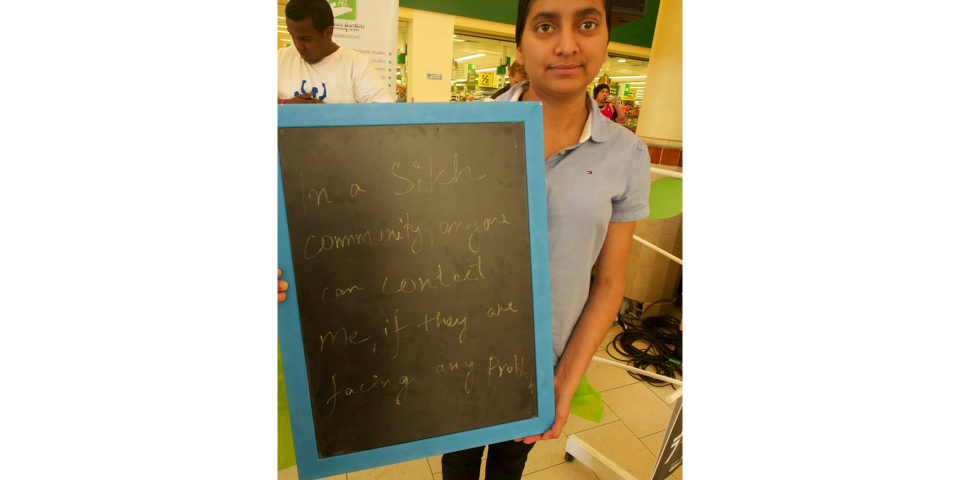 In a Sikh
community, anyone
can contact
me, if they are
facing any